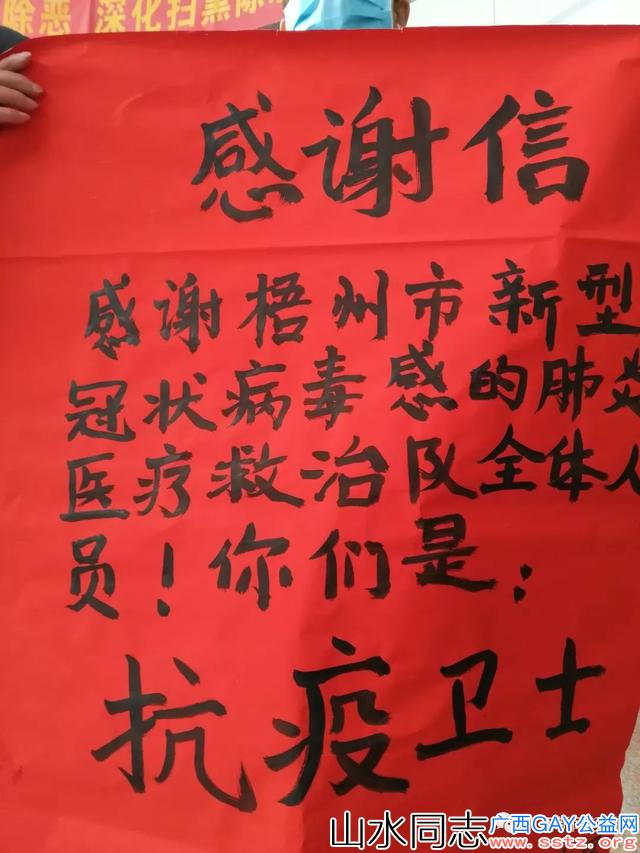 除恶 深化扫黑除
感谢信
感谢梧州市新型
冠状病毒感的肺炎
医疗救治队全体人
员！你们是：
抗疫卫士
山水同志 广西GAY公益网
www.sstz.org